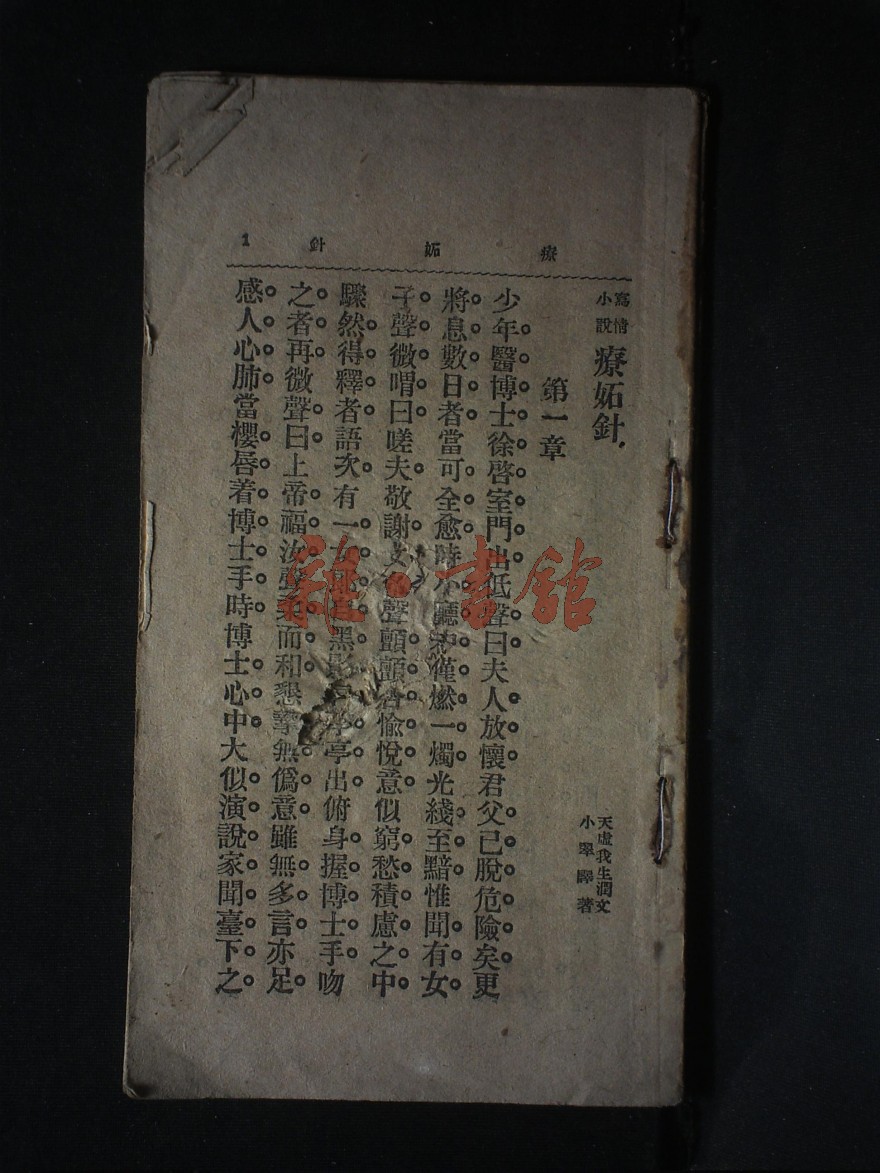 療妬針 1
寫情小說 療妬針
天虛我生潤文
小翠譯著
第一章
少年醫博士徐啓室門出低聲曰夫人放懷君父已脫危險矣更
將息數日者當可全愈時小廳中僅燃一燭光綫至黯惟聞有女
子聲微喟曰嗟夫敬謝 聲顫顫若愉悅意似窮愁積慮之中
驟然得釋者語次有一女 黑影 亭出俯身握博士手吻
之者再微聲曰上帝福汝聲柔而和懇摯無僞意雖無多言亦足
感人心肺當櫻唇着博士手時博士心中大似演說家聞臺下之
雜·書館